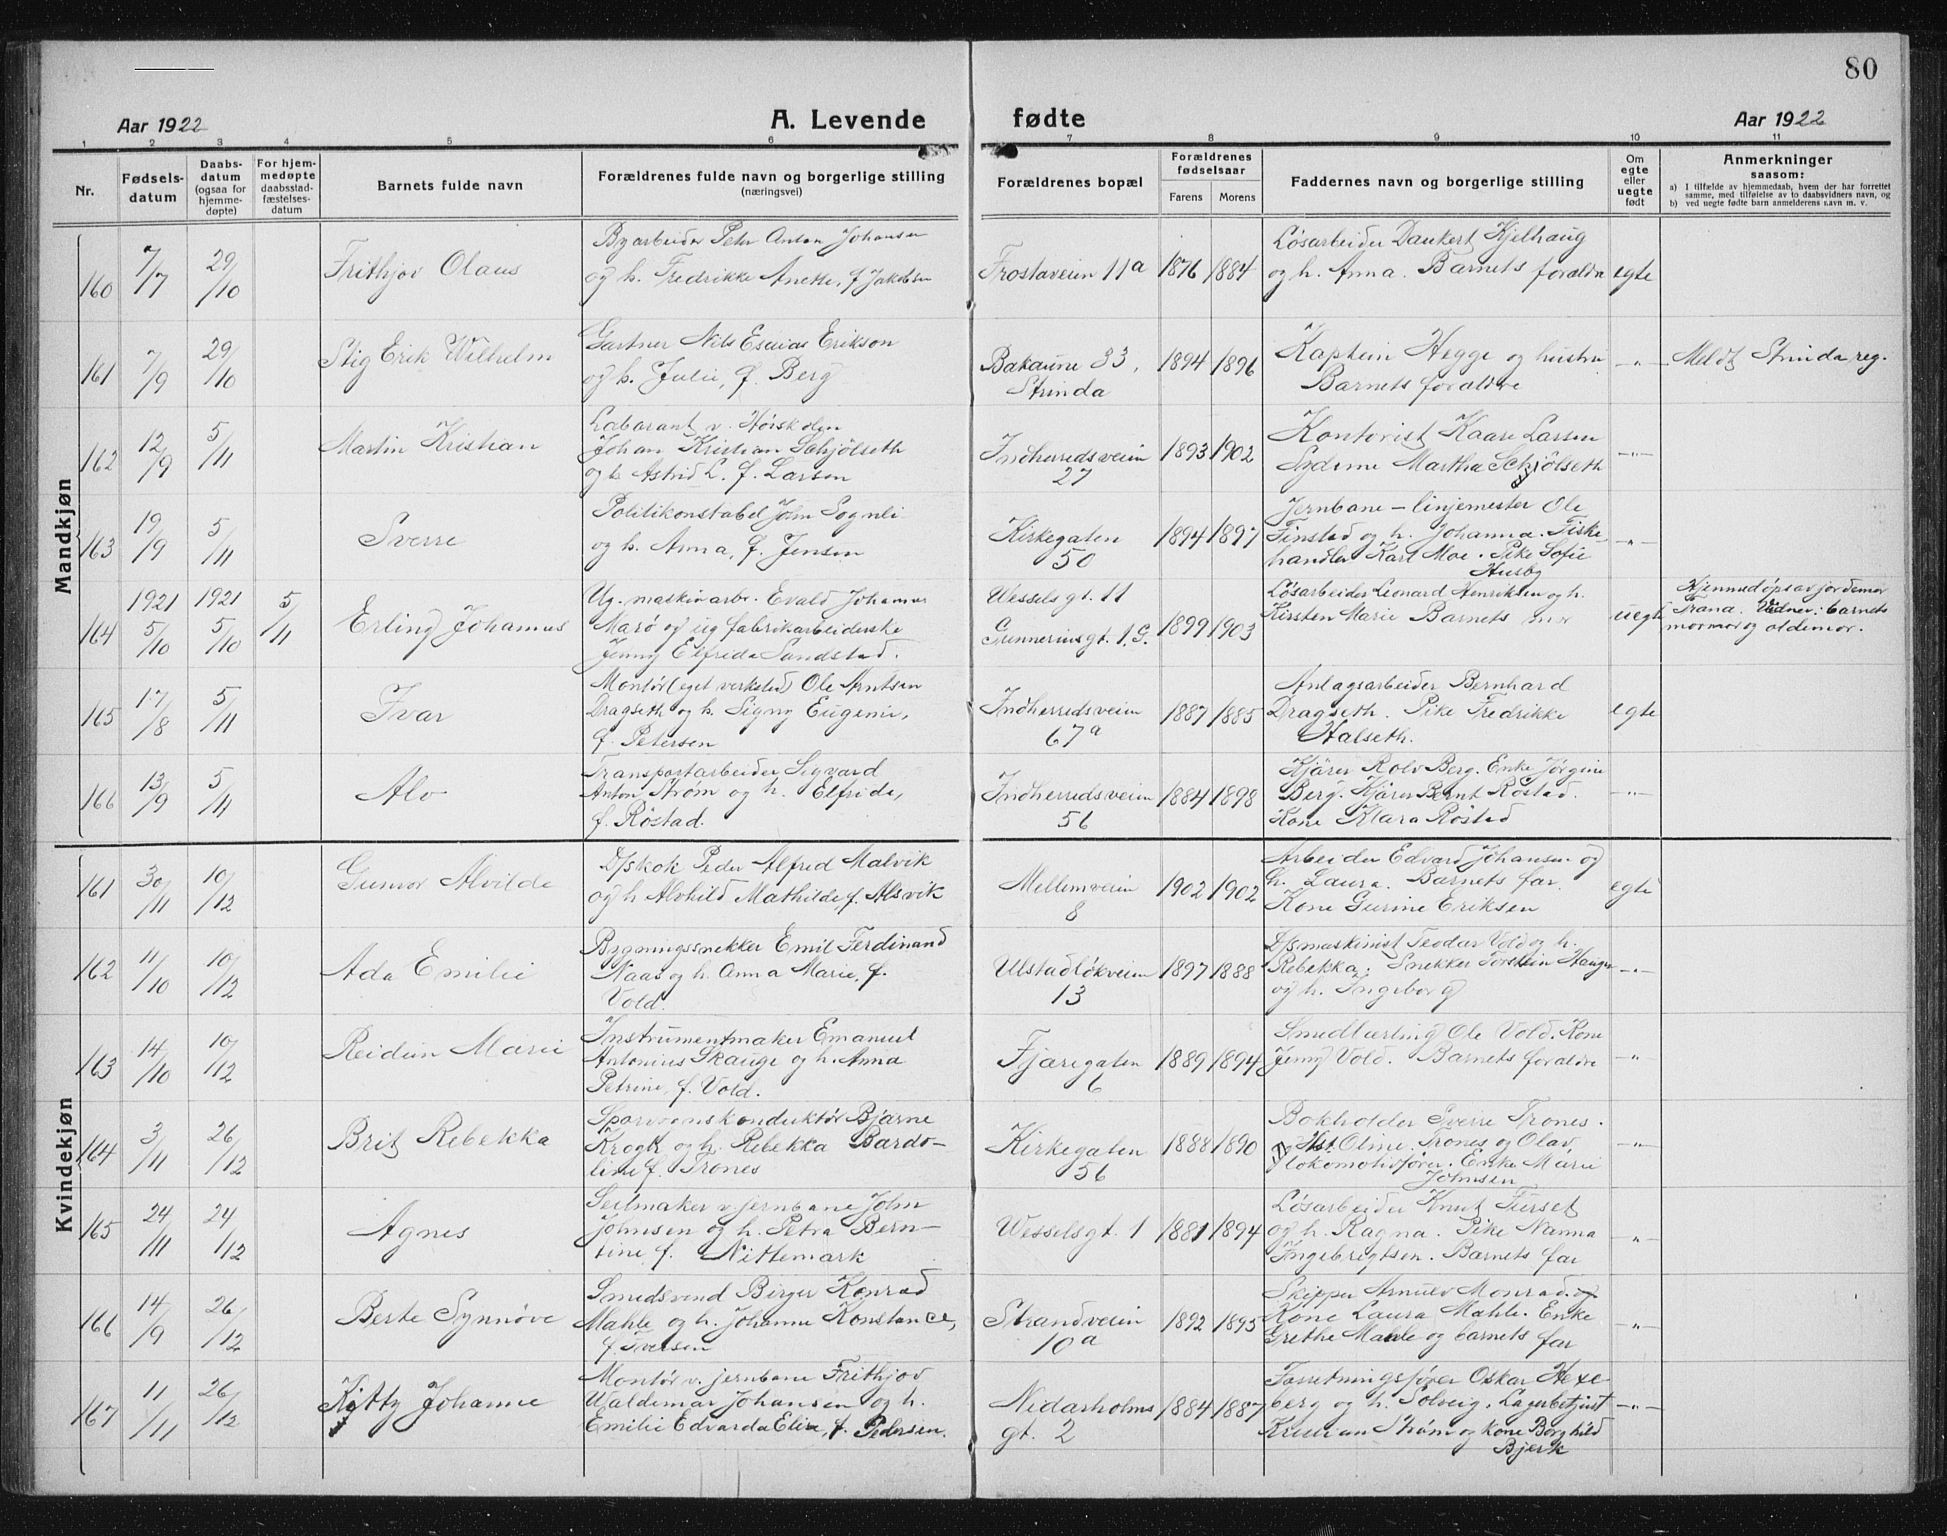 80
Aar 1922
A. Levende
fødte
Aar 1922
1 2 3 4 5 6 7 8 9 10 11
Nr.
Fødsels-
datum
Daabs-
datum
(ogsaa for
hjemme-
døpte)
For hjem-
medøpte
daabsstad-
fæstelses-
datum
Barnets fulde navn
Forældrenes fulde navn og borgerlige stilling
(næringsvei)
Forældrenes bopæl
Forældrenes
fødselsaar
Farens
Morens
Faddernes navn og borgerlige stilling
Om
egte
eller
uegte
født
Anmerkninger
saasom:
a) I tilfælde av hjemmedaab, hvem der har forrettet
samme, med tilføielse av to daabsvidners navn, og
b) ved uegte fødte barn anmelderens navn m. v.
Mandkjøn
160 7/7 29/10 Frithjov Olaus
Byarbeider Petr Anton Johansen
og h. Fredrikke Anette, f Jakobsen
Frostaveien 11a 1876 1884
Løsarbeider Dankert Kjelhaug
og h. Anna. Barnets forældre
egte
161 7/9 29/10 Stig Erik Wilhelm
Gartner Nils Esaias Erikson
og h. Julie, f. Berg
Bakaune 33,
Strinda
1894 1896
Kaptein Hegge og hustru
Barnets forældre
-"-
Meldt Strinda reg.
162 12/9 5/11 Martin Kristian
Laborant v. Høiskolen
Johan Kristian Schjølseth
og h Astrid L. f. Larsen
Indherredsveien
27
1893 1902
Kontorist Kaare Larsen
Sydame Martha Schjølseth
-"-
163 19/9 5/11 Sverre
Politikonstabel John Sognli
og h. Anna, f. Jensen
Kirkegaten
50
1894 1897
Jernbane-linjemester Ole
Finstad og h. Johanna. Fiske-
handler Karl Moe. Pike Sofie
Husby
-"-
164 1921 5/10 1921 5/10 5/11 Erling Johannes
Ug. maskinarb. Evald Johannes
Marø og ug fabrikarbeiderske
Jenny Elfrida Sandstad.
Wessels gt. 11
Gunneriusgt. 1,G.
1899 1903
Løsarbeider Leonard Henriksen og h.
Kirsten Marie Barnets mor
uegte
Hjemmedöpt av jordemor
Frana. Vidner: barnets
mormor og oldemor.
165 17/8 5/11 Ivar
Montør (eget verksted) Ole Arntsen
Dragseth og h. Signy Eugenie,
f. Petersen
Indherredsveien
67a
1887 1885
Anlagsarbeider Bernhard
Dragseth. Pike Fredrikke
Halseth.
egte
166 13/9 5/11 Alv
Transportarbeider Sigvard
Anton Strøm og h. Elfride,
f. Röstad.
Indherredsveien
56
1884 1898
Kjörer Rolv Berg. Enke Jörgine
Berg. Kjörer Bernt Röstad.
Kone Klara Röstad
-"-
Kvindekjøn
161 30/11 10/12 Gunvor Alvilde
D/skok Peder Alfred Malvik
og h Alvhild Mathilde, f. Alsvik
Mellemveien
8
1902 1902
Arbeider Edvard Johansen og
h. Laura. Barnets far.
Kone Gurine Eriksen
egte
162 11/10 10/12 Ada Emilie
Bygningssnekker Emil Ferdinand
Naas og h. Anna Marie, f.
Vold.
Ulstadløkveien
13
1897 1888
D/smaskinist Teodor Vold og h.
Rebekka. Snekker Torstein Hauger
og h. Ingeborg
-"-
163 14/10 10/12 Reidun Marie
Instrumentmaker Emanuel
Antonius Skauge og h. Anna
Petrine, f. Vold.
Fjæregaten
6
1889 1894
Smedlærling Ole Vold. Kone
Jenny Vold. Barnets forældre
-"-
164 3/11 26/12 Brit Rebekka
Sporvoinskonduktør Bjarne
Krogh og h. Rebekka Bardo-
line f. Trones
Kirkegaten
56
1888 1890
Bokholder Sverre Trones.
Hst. Oline. Trones og Olav,
lokomotivfører. Enke Marie
Johnsen
-"-
165 24/11 24/12 Agnes
Seilmaker v. jernbane John
Johnsen og h. Petra Bern-
tine f. Nittemark
Wesselsgt. 1 1881 1894
Løsarbeider Knut Furset
og h. Ragna. Pike Nanna
Ingebregtsen. Barnets far
-"-
166 14/9 26/12 Berte Synnøve
Smedsvend Birger Konrad
Mahle og h. Johanne Konstance,
f. Iversen
Strandveien
10a
1892 1895
Skipper Arnulv Monrad. og
Kone Laura Mahle. Enke
Grethe Mahle og barnets far
-"-
167 11/11 26/12 Kitty Johanne
Montør v. jernbane Frithjov
Waldemar Johansen og h.
Emilie Edvarda Elise, f. Pedersen.
Nidarholms
gt. 2
1884 1887
Forretningsfører Oskar Hexe-
berg og h. Solveig. Lagerbetjent
Kristian Strøm og kone Borghild
Bjerk
-"-